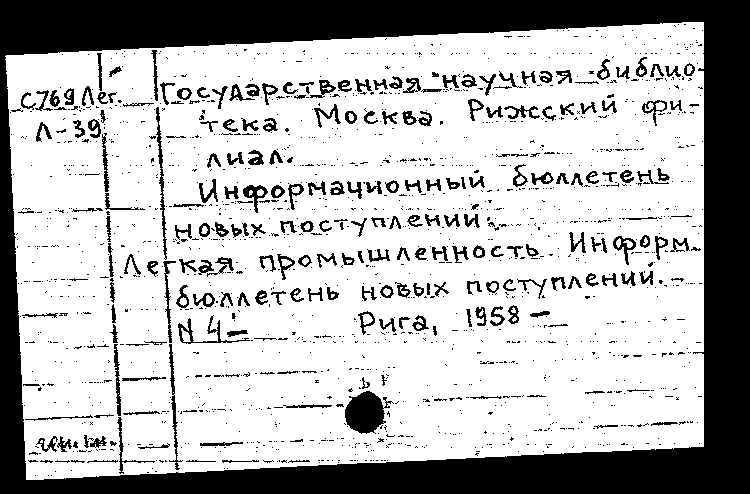 С769 Лег. Государственная научная библио-
Л-39 тека. Москва. Рижский фи-
лиал.
Информационный бюллетень
новых поступлений.
Легкая промышленность. Информ.
бюллетень новых поступлений.-
N 4- Рига, 1958 -